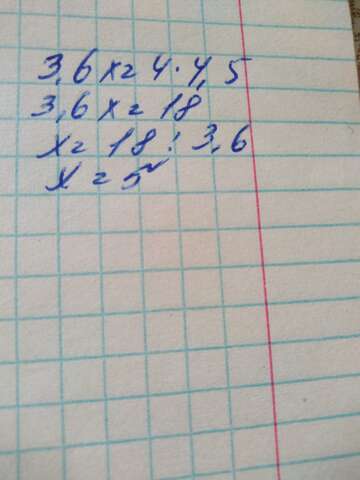 3,6 x = 4 · 4,5
3,6 x = 18
x = 18 : 3,6
x = 5